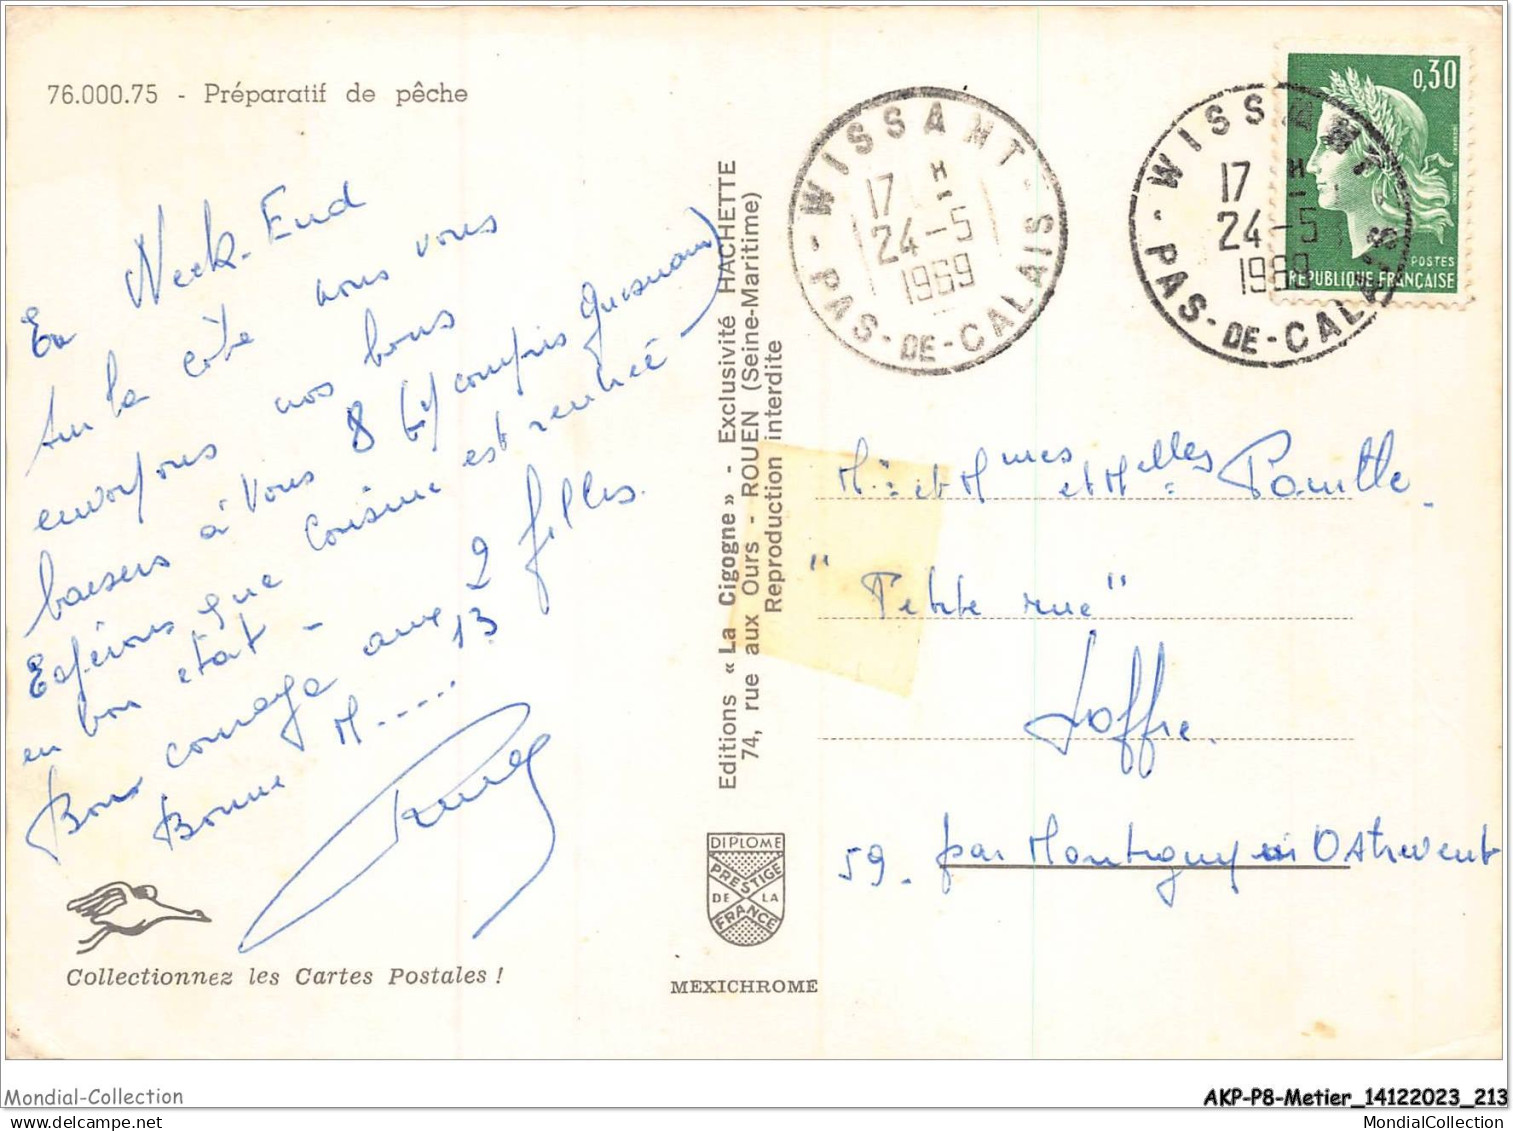 76.000.75 - Préparatif de pêche
En Week-End
sur la côte nous vous
envoyons nos bons
baisers à vous 8 (y compris Quesnain)
Espérons que cousine est rentrée -
en bon état -
Bon courage aux 2 filles.
Bonne M..... 13
Editions « La Cigogne » - Exclusivité HACHETTE
74, rue aux Ours - ROUEN (Seine-Maritime)
Reproduction interdite
WISSANT
17 H
24-5
1969
PAS-DE-CALAIS
WISSANT
17 H
24-5
1969
PAS-DE-CALAIS
0,30
POSTES
REPUBLIQUE FRANÇAISE
Mr et Mmes et Melles
"Petite rue"
Loffre.
59. par Montigny en Ostrevent
DIPLOME
PRESTIGE
DE LA
FRANCE
Collectionnez les Cartes Postales !
MEXICHROME
Mondial-Collection
AKP-P8-Metier_14122023_213
MondialCollection